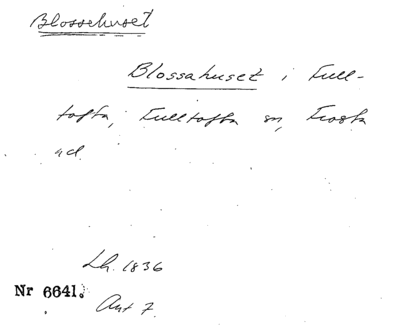 Blossehuset
Blossahuset i Full-
tofta, Fulltofta sn, Frosta
hd.
Lh. 1836
Nr 6641.
Ant 7.